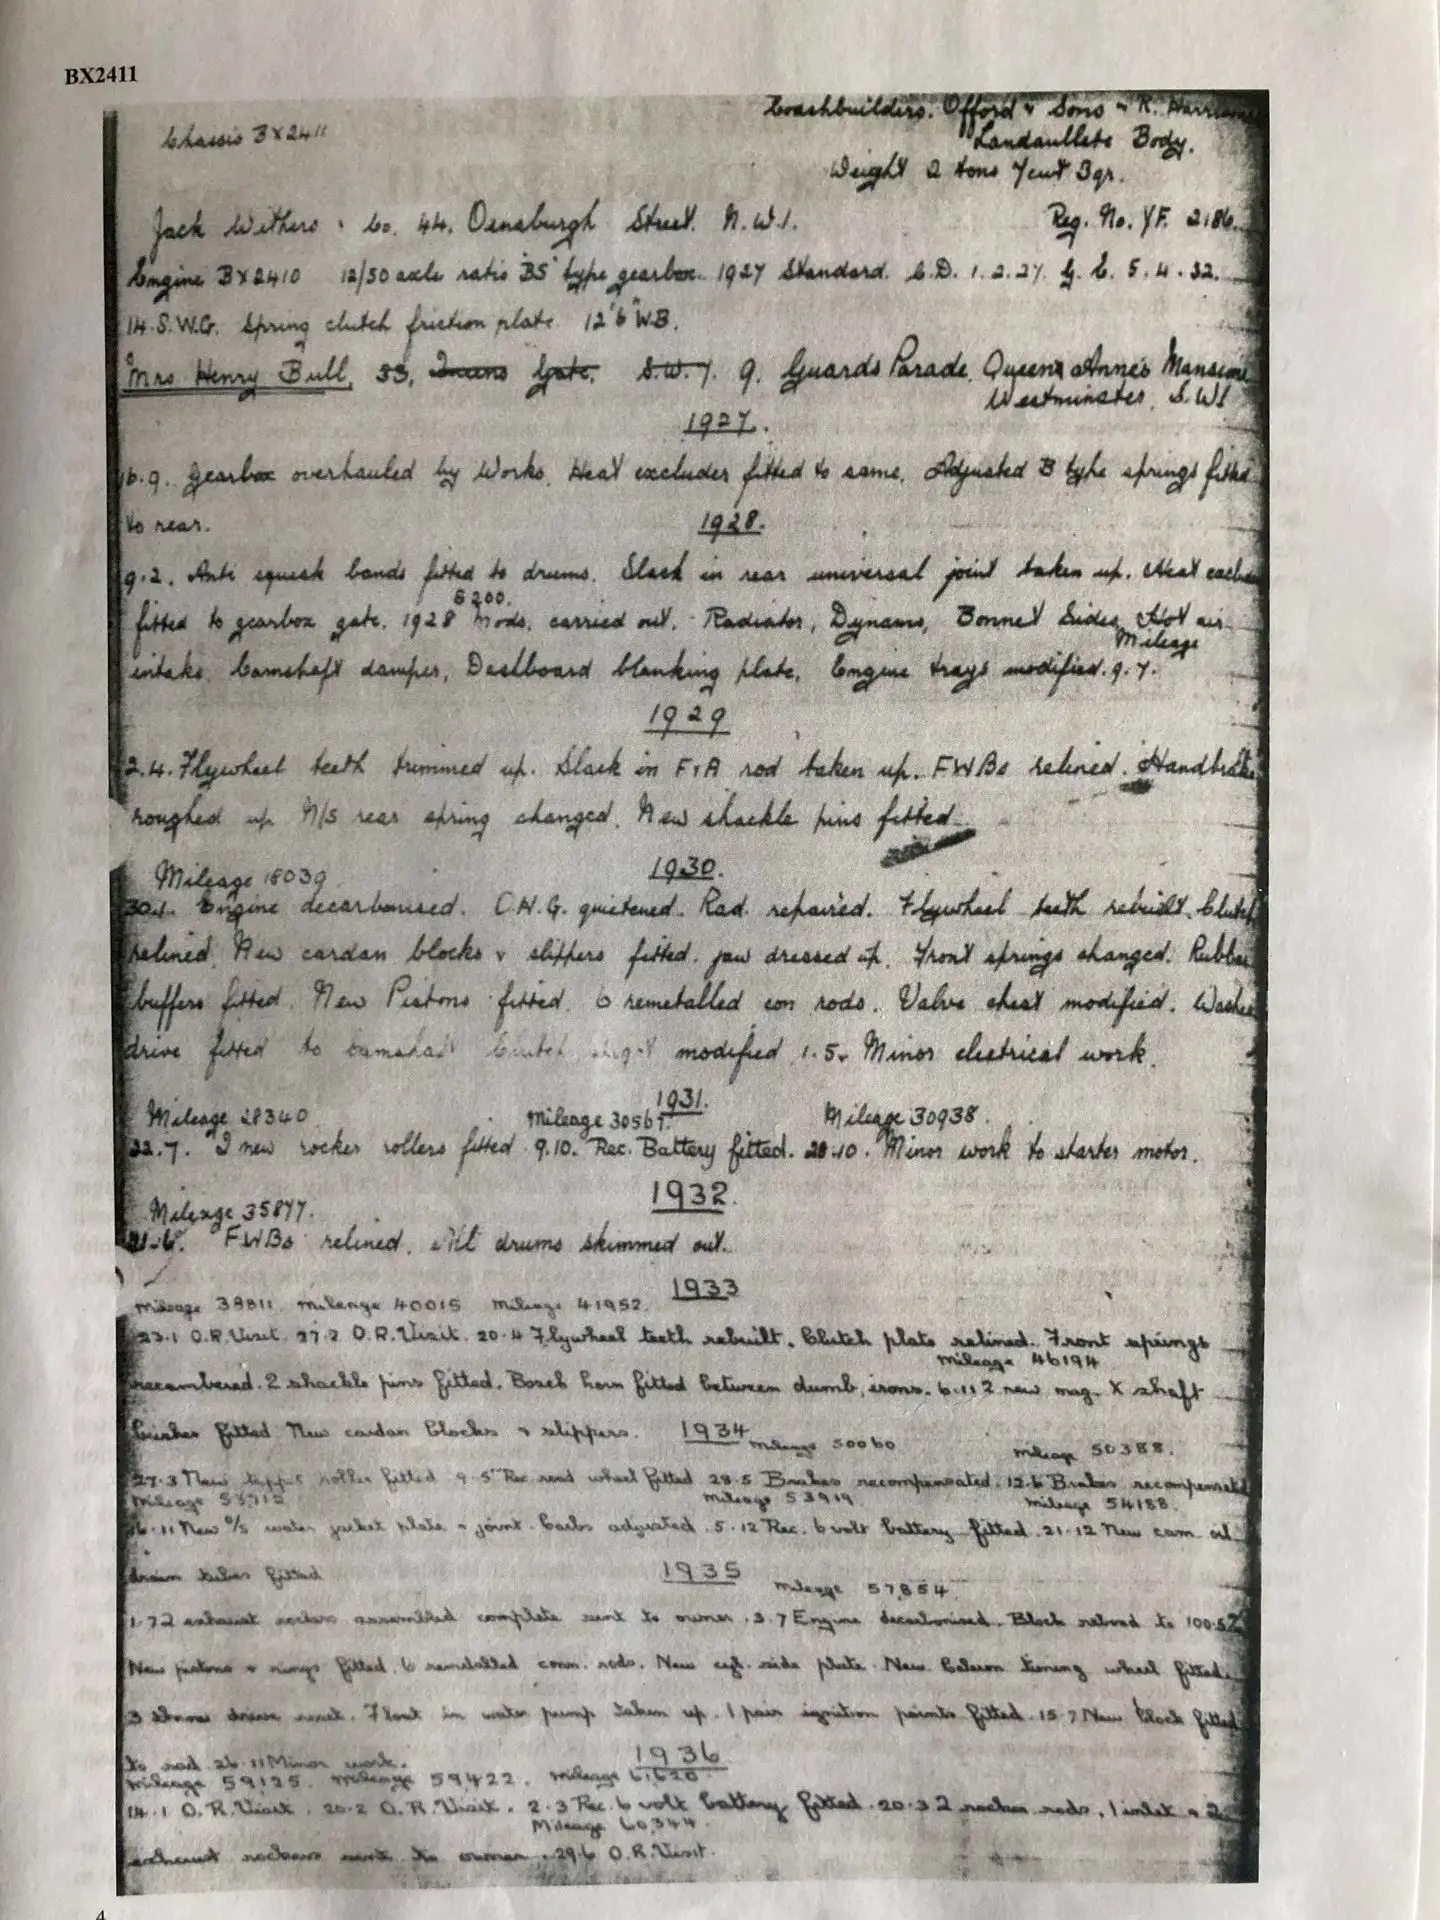 BX2411
Coachbuilders. Offord & Sons & R. Harrison
Chassis BX2411
Landaullete Body.
Weight 2 tons 7cwt 3qr.
Jack Withers & Co. 44. Osnaburgh Street. N.W.1.
Reg. No. YF. 2186.
Engine BX2410 12/50 axle ratio 'BS' type gearbox. 1927 Standard. C.D. 1.2.27. G. E. 5.4.32.
14.S.W.G. Spring clutch friction plate. 12'6" W.B.
Mrs Henry Bull, 33, Queens Gate, S.W.7. 9. Guards Parade, Queen Anne's Mansions
Westminster, S.W1
1927.
16.9. Gearbox overhauled by Works. Heat excluder fitted to same. Adjusted B type springs fitted
to rear.
1928.
9.2. Anti squeak bands fitted to drums. Slack in rear universal joint taken up. Heat
6200.
fitted to gearbox gate. 1928 Mods. carried out. Radiator, Dynamo, Bonnet Sides, Hot air
Mileage
intake, Camshaft damper, Dashboard blanking plate, Engine trays modified. 9.7.
1929
2.4. Flywheel teeth trimmed up. Slack in F&A rod taken up. FWBs relined. Handbrake
roughed up N/S rear spring changed. New shackle pins fitted
1930.
Mileage 18039
30.1. Engine decarbonised. C.N.G. quietened. Rad. repaired. Flywheel teeth rebuilt. Clutch
relined. New cardan blocks & slippers fitted. jaw dressed up. Front springs changed. Rubber
buffers fitted. New Pistons fitted. 6 remetalled con rods. Valve chest modified. Washer
drive fitted to camshaft Clutch modified. 1.5. Minor electrical work.
1931.
Mileage 28340 Mileage 30567. Mileage 30938.
22.7. 7 new rocker rollers fitted 9.10. Rec. Battery fitted. 28.10. Minor work to starter motor.
1932.
Mileage 35877.
21.6. FWBs relined. All drums skimmed out.
1933
Mileage 38811. Mileage 40015 Mileage 41952.
23.1 O.R. Visit. 27.2 O.R. Visit. 20.4 Flywheel teeth rebuilt. Clutch plate relined. Front springs
Mileage 46194
recambered. 2 shackle pins fitted. Bosch horn fitted between dumb irons. 6.11 2 new mag. X shaft
bushes fitted New cardan blocks & slippers.
1934
Mileage 50060 Mileage 50388.
27.3 New tappet roller fitted 9.5 Rec. road wheel fitted 28.5 Brakes recompensated. 12.6 Brakes recompensated
Mileage Mileage 53919 Mileage 54188.
16.11 New O/S water jacket plate & joint. Carbs adjusted. 5.12 Rec. 6 volt battery fitted. 21.12 New cam oil
drain tubes fitted
1935
Mileage 57,854
1.7 2 exhaust rockers assembled complete sent to owner. 3.7 Engine decarbonised. Block rebored to 100.52
New pistons & rings fitted. 6 remetalled conn. rods. New cyl. side plate. New Celeron timing wheel fitted.
3 throw drive reset. Float in water pump taken up. 1 pair ignition points fitted. 15.7 New block fitted
to rad. 26.11 Minor work.
1936
Mileage 59125. Mileage 59422. Mileage 61,620
14.1 O.R. Visit. 20.2 O.R. Visit. 2.3 Rec. 6 volt battery fitted. 20.3 2 rocker rods, 1 inlet & 2
Mileage 60,344.
exhaust rockers sent to owner. 29.6 O.R. Visit.
4